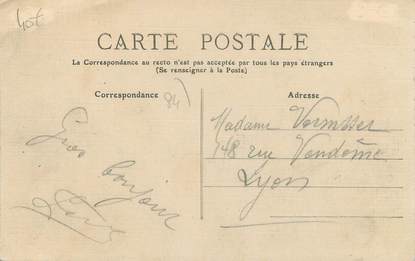 40€
CARTE POSTALE
La Correspondance au recto n'est pas acceptée par tous les pays étrangers
(Se renseigner à la Poste)
Correspondance
84
Gros bonjour
Adresse
Madame
148 rue Vendôme
Lyon